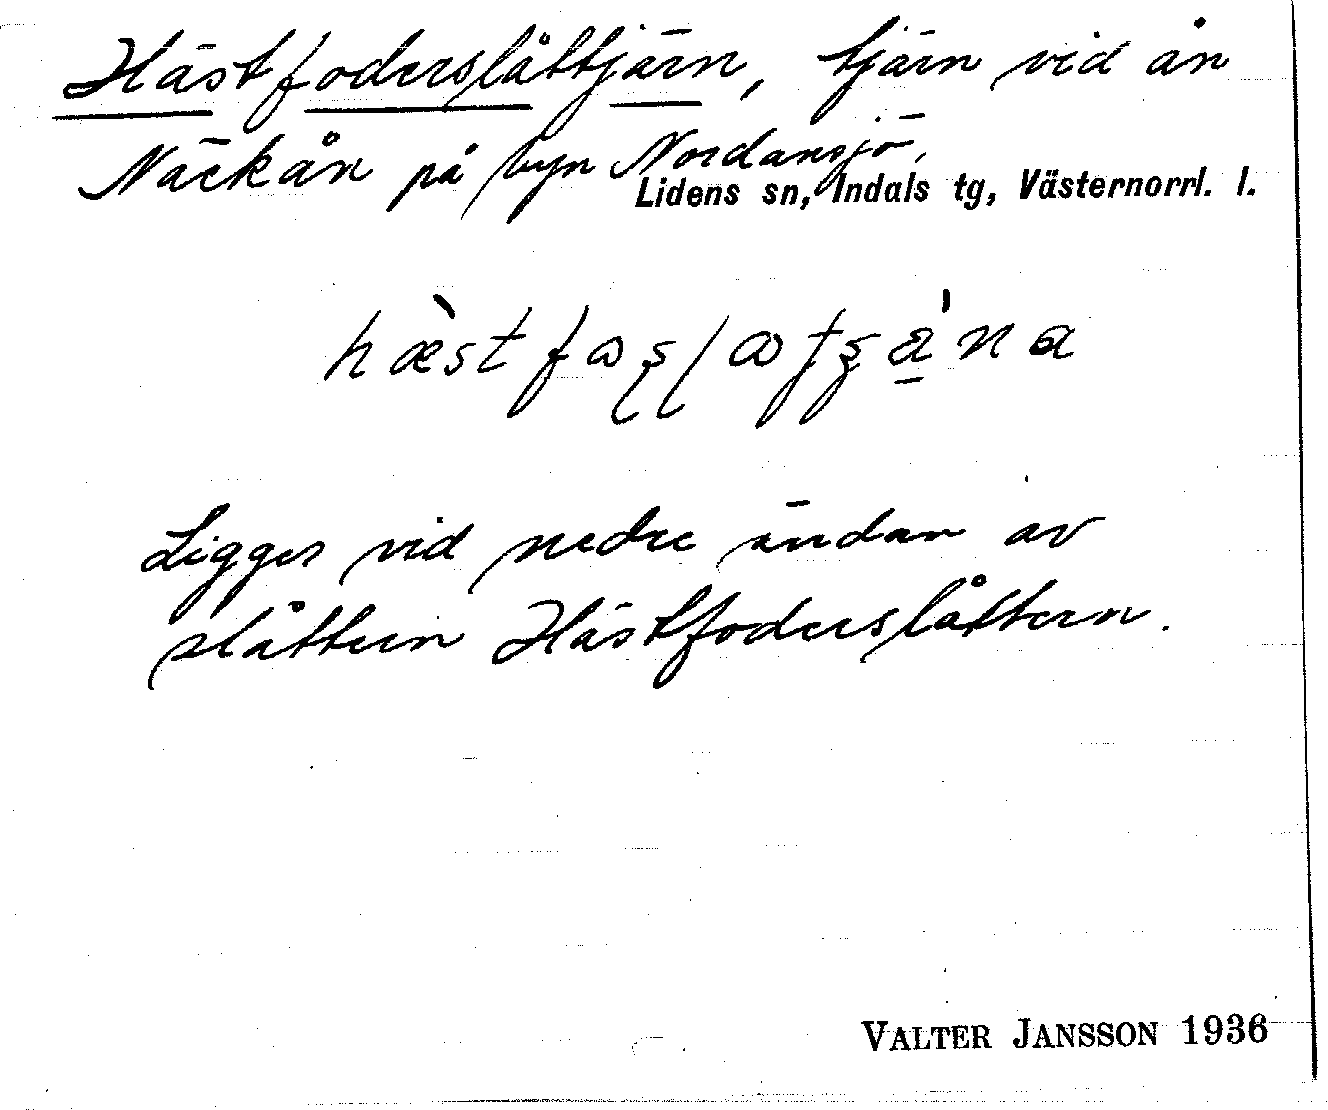 Hästfoderslåttjärn, tjärn vid ån
Näckån på byn Nordansjö,
Lidens sn, Indals tg, Västernorrl. l.
Ligger vid nedre ändan av
slåttern Hästfoderslåttern.
VALTER JANSSON 1936